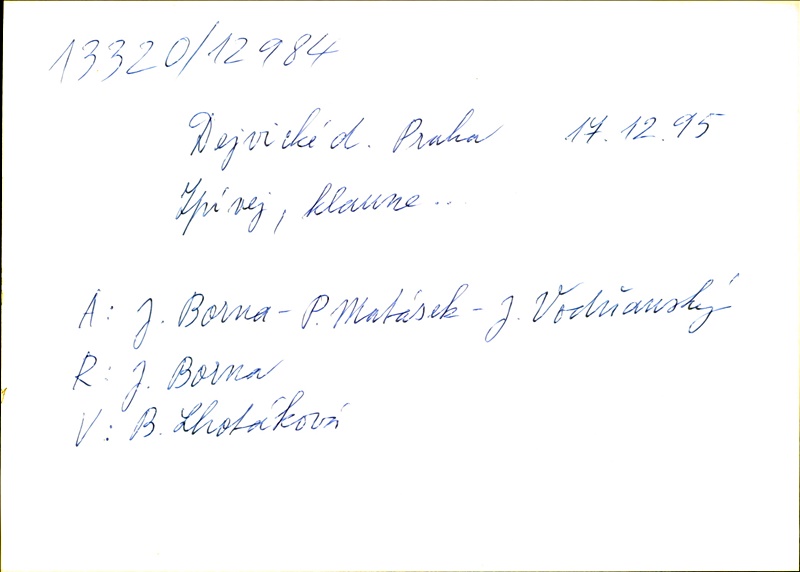 13320/12984
Dejvické d. Praha 17.12.95
Zpívej, klaune...
A: J. Borna - P. Matásek - J. Vodňanský
R: J. Borna
V: B. Lhotáková